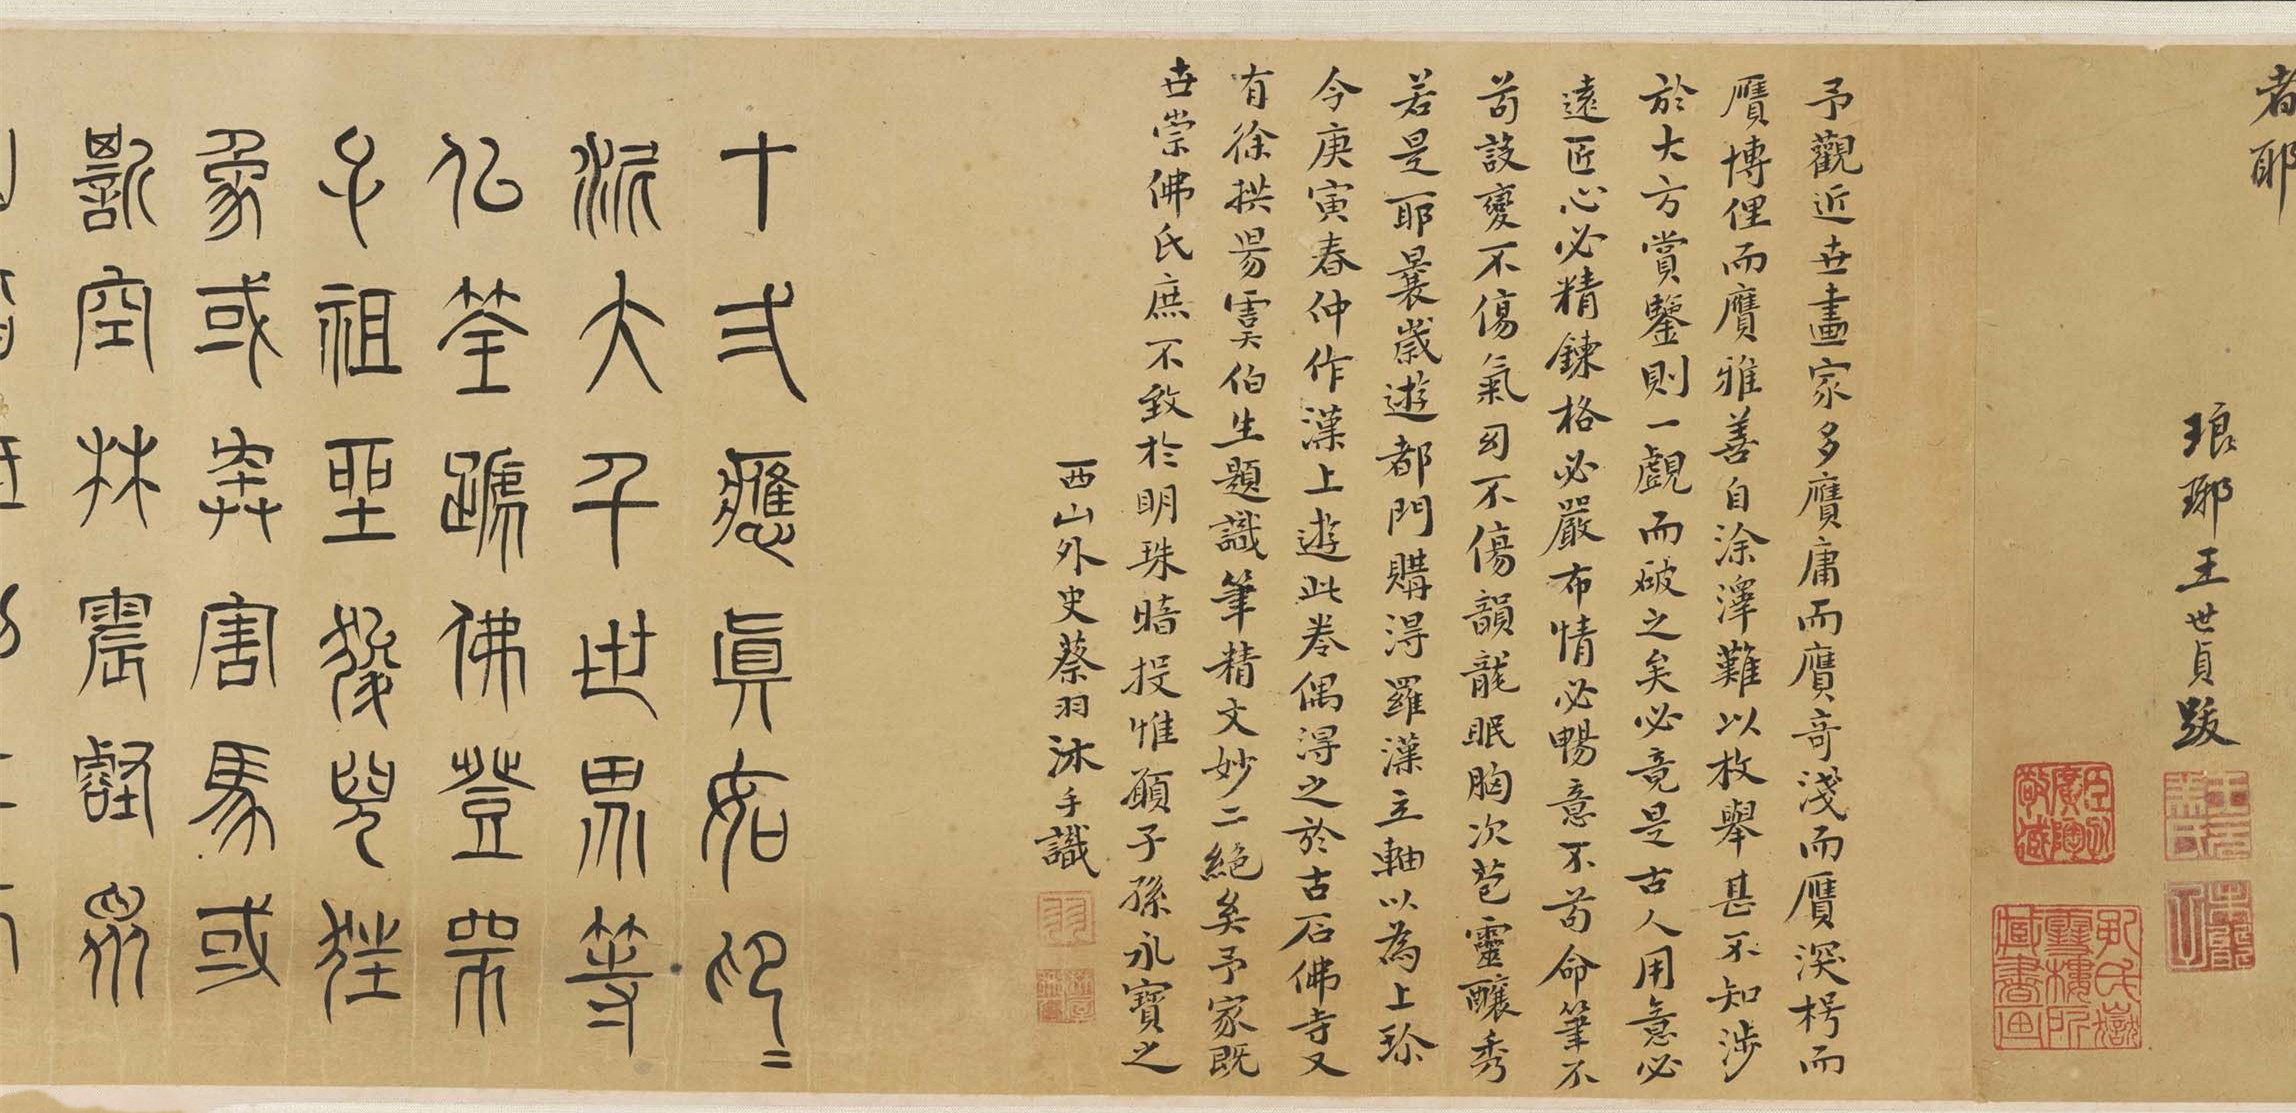 者耶
琅琊王世貞跋
予觀近世畫家多贗庸而贗奇淺而贗深枵而
贗博俚而贗雅善自涂澤難以枚舉甚不知涉
於大方賞鑒則一覷而破之矣必竟是古人用意必
遠匠心必精鍊格必嚴布情必暢意不苟命筆不
苟設變不傷氣匀不傷韻龍眠胸次苞靈釀秀
若是耶曩歲遊都門購得羅漢立軸以為上珍
今庚寅春仲作漢上遊此卷偶得之於古石佛寺又
有徐拱昜雲天伯生題識筆精文妙二絕矣予家既
世崇佛氏庶不致於明珠暗投惟願子孫永寶之
西山外史蔡羽沐手識
十弍應眞如
派大千世界等
仏荃蹏佛登眾
子祖聖発覺狴
象或奔害馬或
獸空林震壑眾